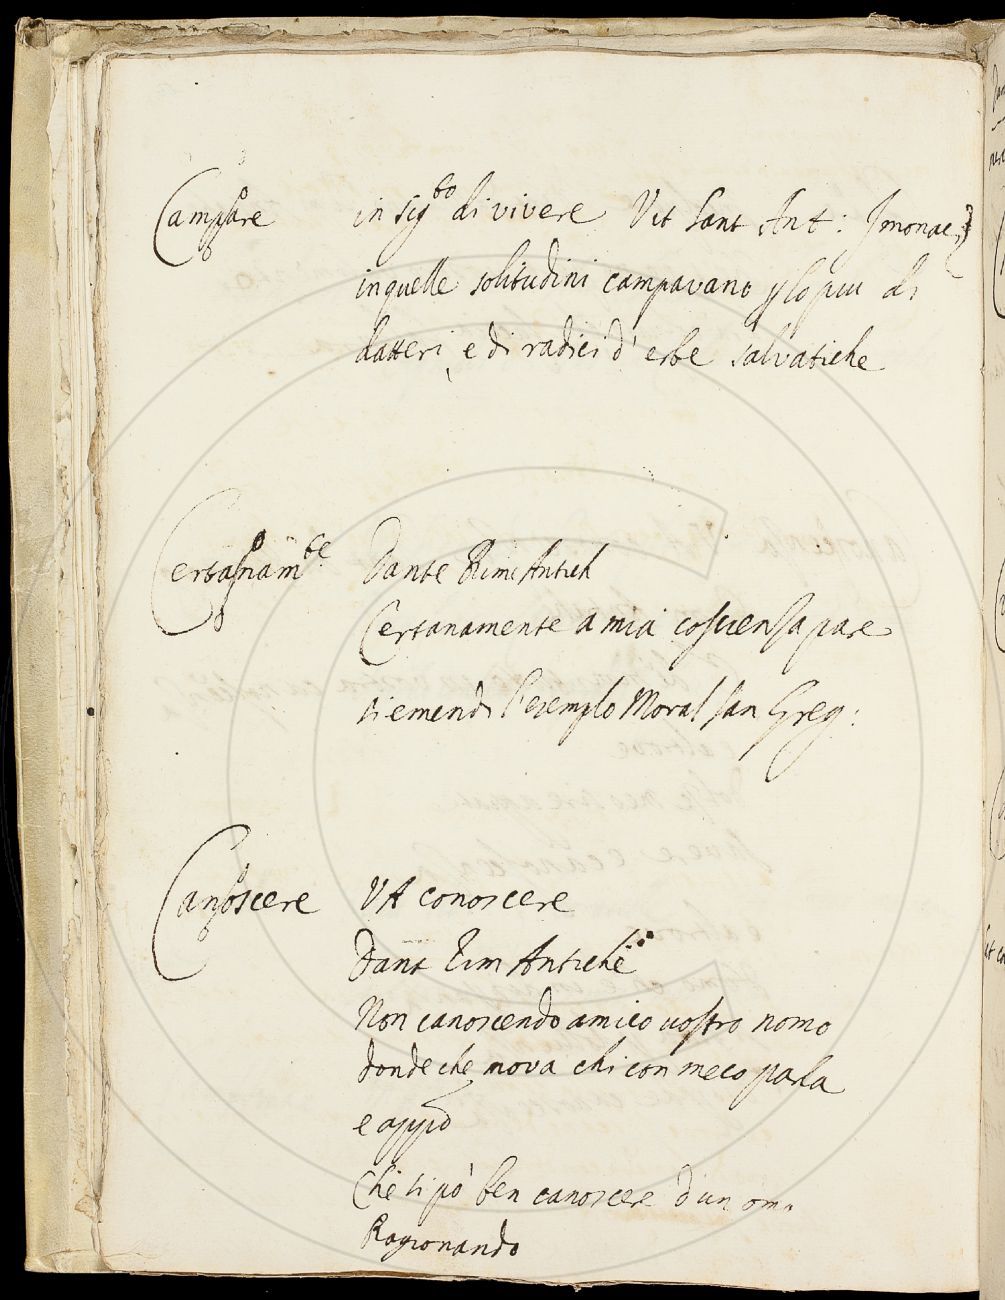 Campare in sig.to di vivere Vit Sant Ant: I monaci
in quelle solitudini campavano p lo piu di
datteri, e di radici d'erbe salvatiche
Certanam.te Dante Rime Antich
Certanamente a mia coscienza pare
si emendi l'esemplo Moral San Greg:
Canoscere VA conoscere
Dant Rim Antiche
Non canoscendo amico vostro nomo
donde che mova chi con meco parla
e appo
Che si pò ben canoscere d'un om
Ragionando